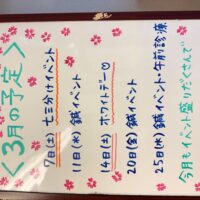 <3月の予定>
7日(土) 七三分けイベント
11日(水) 鍼イベント
14日(土) ホワイトデー♡
20日(金) 鍼イベント
25日(水) 鍼イベント・午前診療
今月もイベント盛りだくさんで